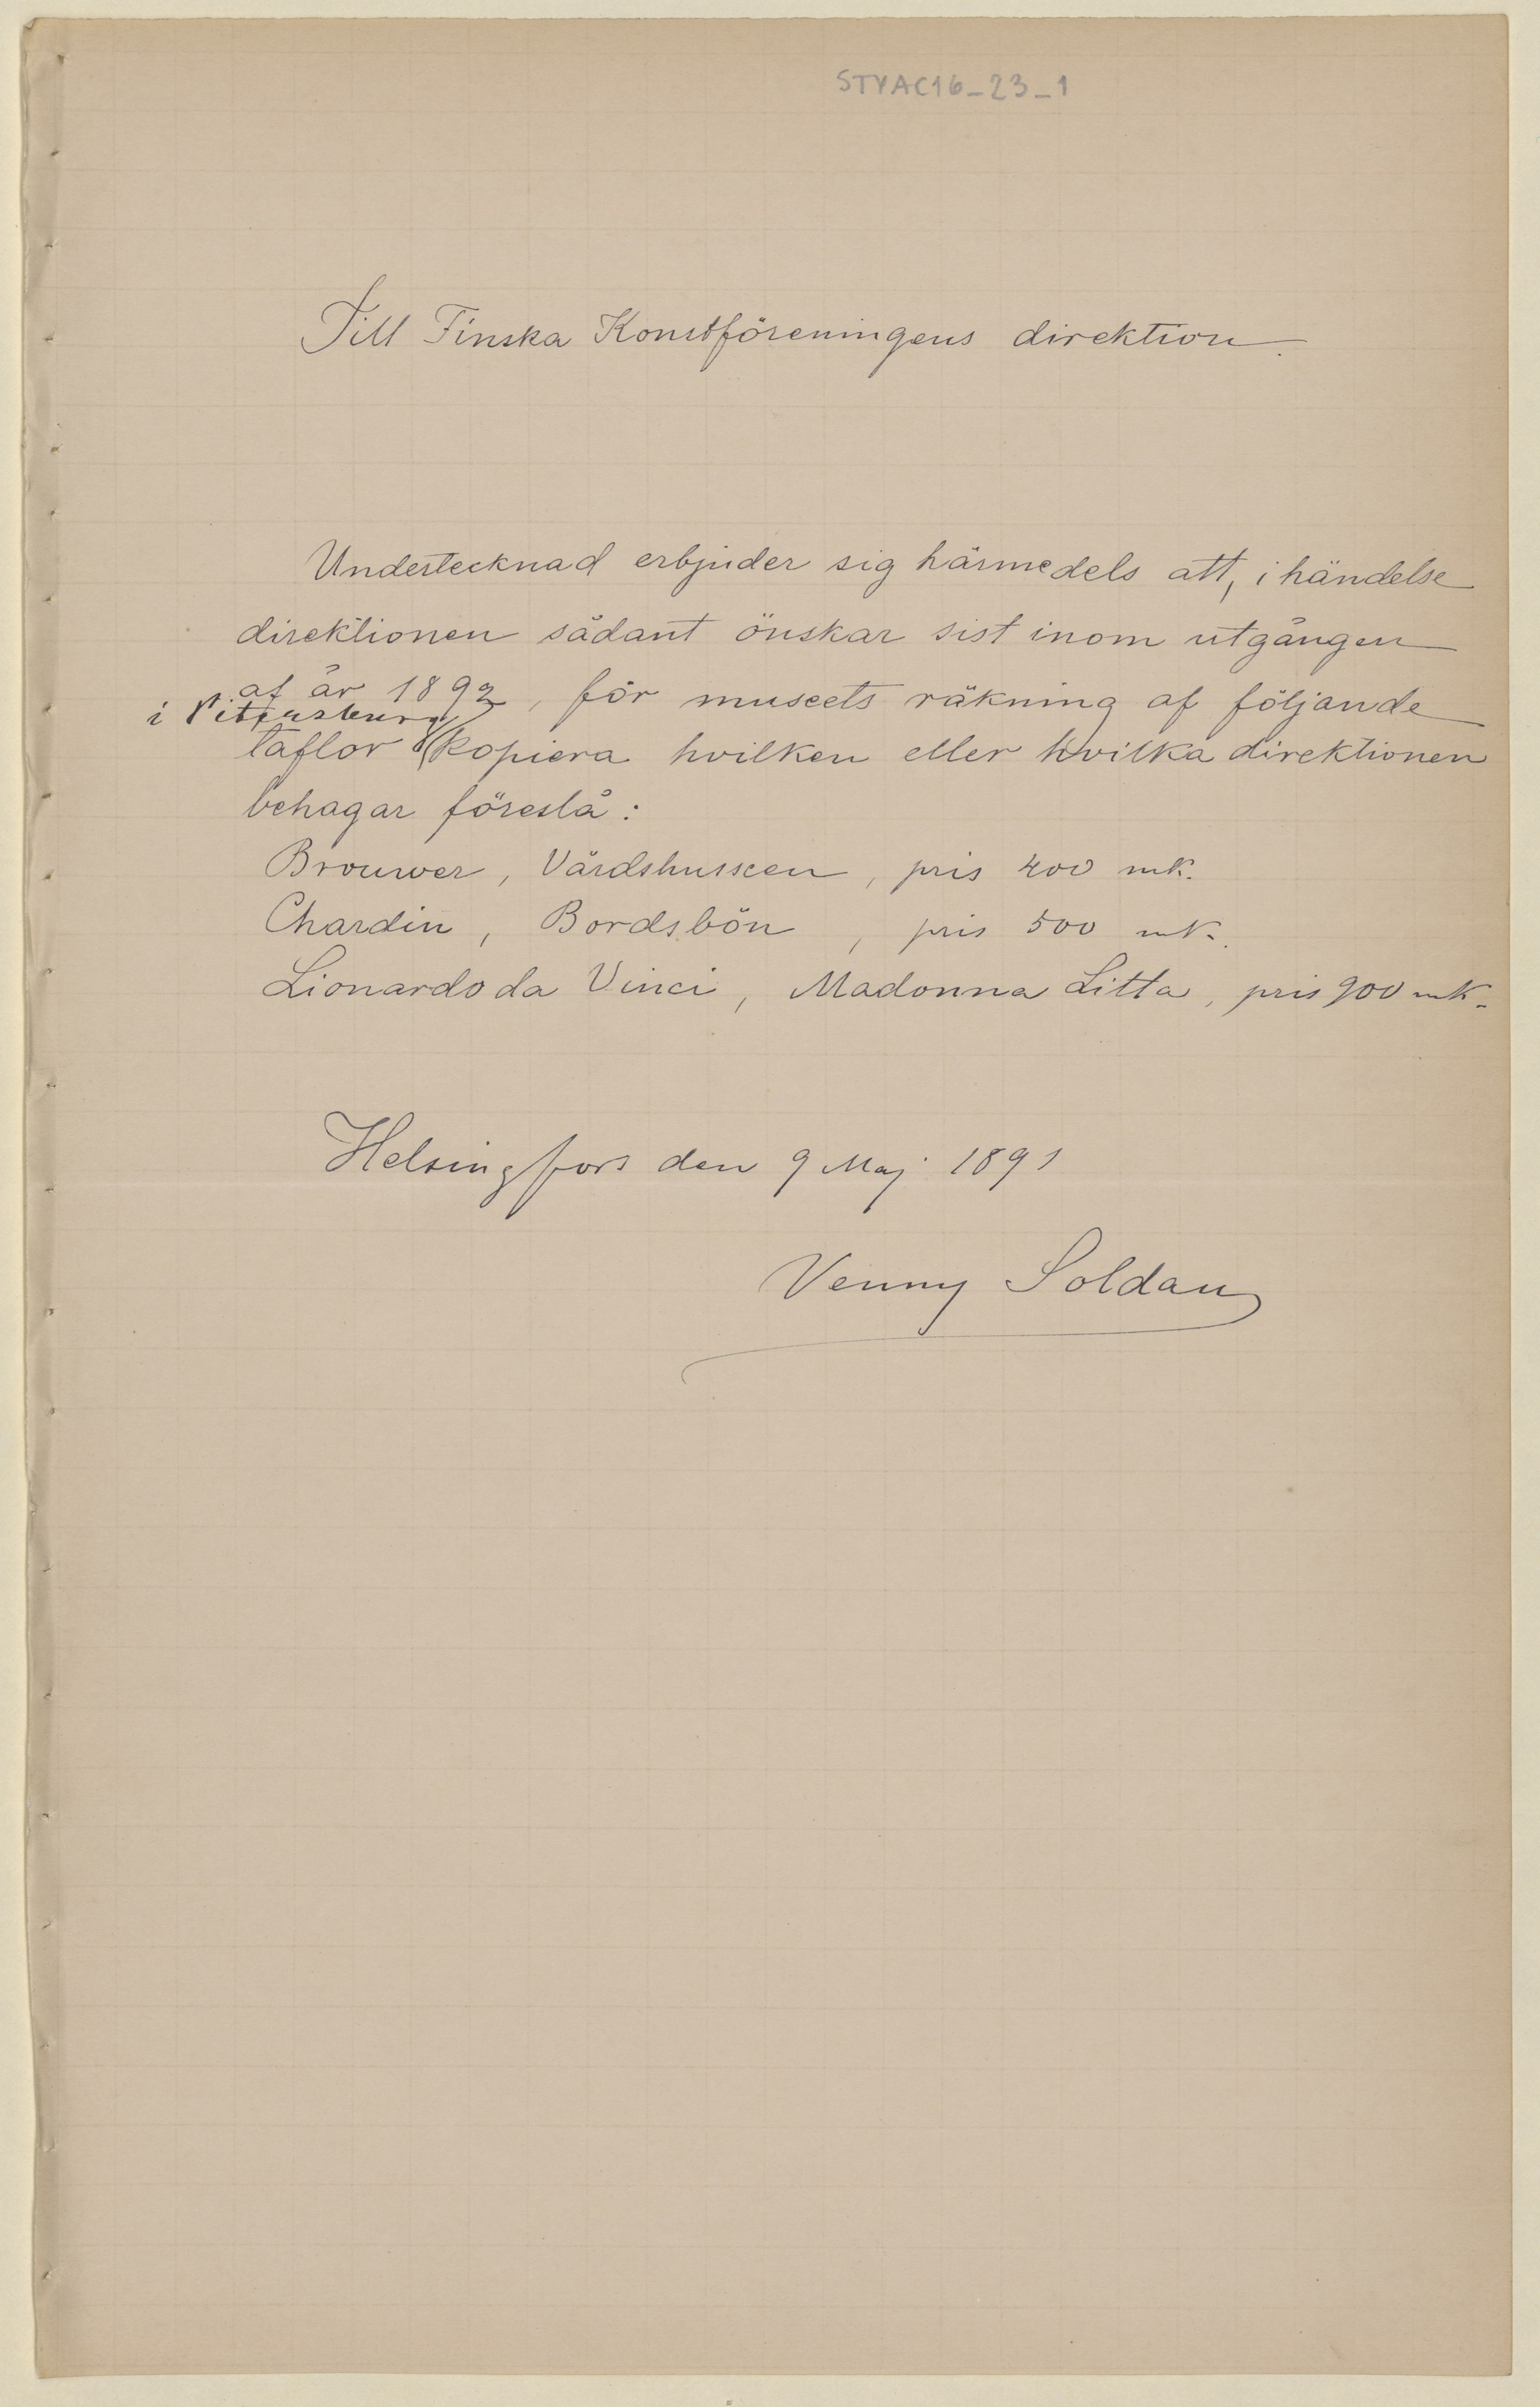 STYAC16_23_1
Till Finska Konstföreningens direktion.
Undertecknad erbjuder sig härmedels att, i händelse
direktionen sådant önskar sist inom utgången
af år 1892, för museets räkning af följande
i Petersburg
taflor kopiera hvilken eller hvilka direktionen
behagar föreslå:
Brouwer, Värdshusscen, pris 400 mk.
Chardin, Bordsbön, pris 500 mk.
Lionardo da Vinci, Madonna Litta, pris 900 mk.
Helsingfors den 9 Maj 1891
Venny Soldan